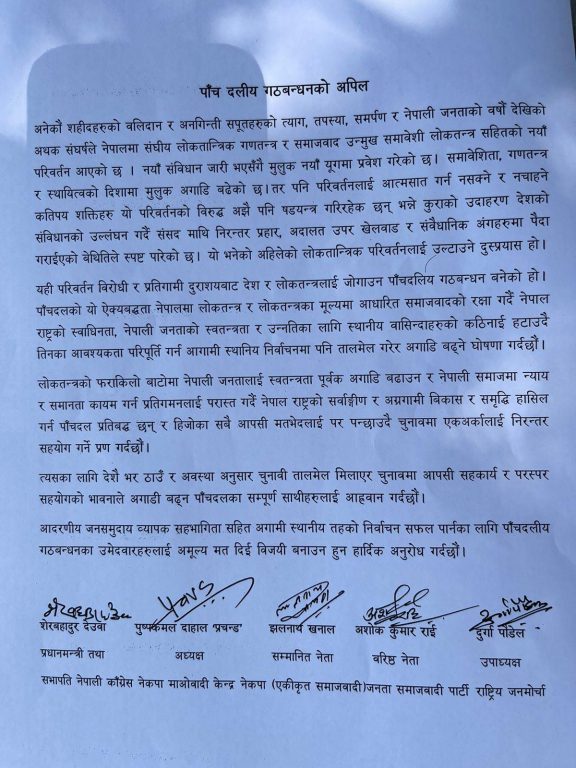 पाँच दलीय गठबन्धनको अपिल
अनेकौ शहीदहरुको बलिदान र अनगिन्ती सपूतहरुको त्याग, तपस्या, समर्पण र नेपाली जनताको वर्षौ देखिको
अथक संघर्षले नेपालमा संघीय लोकतान्त्रिक गणतन्त्र र समाजवाद उन्मुख समावेशी लोकतन्त्र सहितको नयाँ
परिवर्तन आएको छ । नयाँ संविधान जारी भएसँगै मुलुक नयाँ यूगमा प्रवेश गरेको छ। समावेशिता, गणतन्त्र
र स्थायित्वको दिशामा मुलुक अगाडि बढेको छ।तर पनि परिवर्तनलाई आत्मसात गर्न नसक्ने र नचाहने
कतिपय शक्तिहरु यो परिवर्तनको विरुद्ध अझै पनि षडयन्त्र गरिरहेक छन् भन्ने कुराको उदाहरण देशको
संविधानको उल्लंघन गर्दै संसद माथि निरन्तर प्रहार, अदालत उपर खेलवाड र संवैधानिक अंगहरुमा पैदा
गराईएको बेथितिले स्पष्ट पारेको छ। यो भनेको अहिलेको लोकतान्त्रिक परिवर्तनलाई उल्टाउने दुस्प्रयास हो।
यही परिवर्तन विरोधी र प्रतिगामी दुराशयबाट देश र लोकतन्त्रलाई जोगाउन पाँचदलिय गठबन्धन बनेको हो।
पाँचदलको यो ऐक्यबद्धता नेपालमा लोकतन्त्र र लोकतन्त्रका मूल्यमा आधारित समाजवादको रक्षा गर्दै नेपाल
राष्ट्रको स्वाधिनता, नेपाली जनताको स्वतन्त्रता र उन्नतिका लागि स्थानीय वासिन्दाहरुको कठिनाई हटाउदै
तिनका आवश्यकता परिपूर्ति गर्न आगामी स्थानिय निर्वाचनमा पनि तालमेल गरेर अगाडि बढ्ने घोषणा गर्दछौं।
लोकतन्त्रको फराकिलो बाटोमा नेपाली जनतालाई स्वतन्त्रता पूर्वक अगाडि बढाउन र नेपाली समाजमा न्याय
र समानता कायम गर्न प्रतिगमनलाई परास्त गर्दै नेपाल राष्ट्रको सर्वाङ्गीण र अग्रगामी विकास र समृद्धि हासिल
गर्न पाँचदल प्रतिबद्ध छन् र हिजोका सबै आपसी मतभेदलाई पर पन्छाउदै चुनावमा एकअर्कालाई निरन्तर
सहयोग गर्ने प्रण गर्दछौं।
त्यसका लागि देशै भर ठाउँ र अवस्था अनुसार चुनावी तालमेल मिलाएर चुनावमा आपसी सहकार्य र परस्पर
सहयोगको भावनाले अगाडी बढ्न पाँचदलका सम्पूर्ण साथीहरुलाई आह्रवान गर्दछौं।
आदरणीय जनसमुदाय व्यापक सहभागिता सहित अगामी स्थानीय तहको निर्वाचन सफल पार्नका लागि पाँचदलीय
गठबन्धनका उमेदवारहरुलाई अमूल्य मत दिई विजयी बनाउन हुन हार्दिक अनुरोध गर्दछौं।
शेरबहादुर देउवा पुष्पकमल दाहाल 'प्रचन्ड' झलनाथ खनाल अशोक कुमार राई दुर्गा पौडेल
प्रधानमन्त्री तथा अध्यक्ष सम्मानित नेता वरिष्ठ नेता उपाध्यक्ष
सभापति नेपाली काँग्रेस नेकपा माओवादी केन्द्र नेकपा (एकीकृत समाजबादी)जनता समाजबादी पार्टी राष्ट्रिय जनमोर्चा